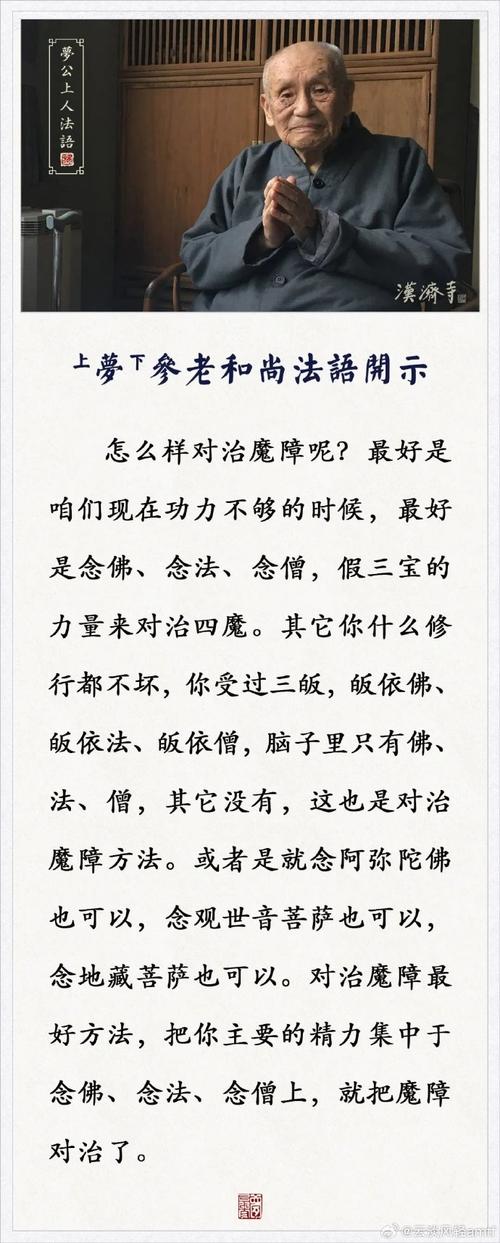 夢公上人法語
漢濟寺
上夢下參老和尚法語開示
怎么样对治魔障呢？最好是
咱们现在功力不够的时候，最好
是念佛、念法、念僧，假三宝的
力量来对治四魔。其它你什么修
行都不坏，你受过三皈，皈依佛、
皈依法、皈依僧，脑子里只有佛、
法、僧，其它没有，这也是对治
魔障方法。或者是就念阿弥陀佛
也可以，念观世音菩萨也可以，
念地藏菩萨也可以。对治魔障最
好方法，把你主要的精力集中于
念佛、念法、念僧上，就把魔障
对治了。
@云淡风轻amtf